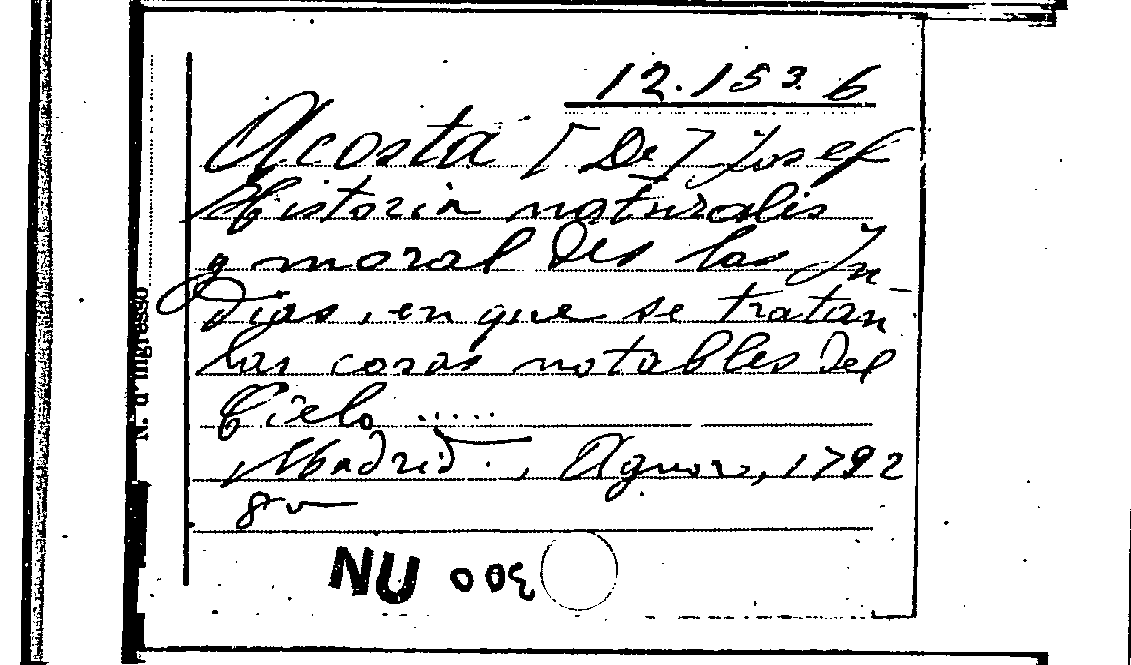 12.153.6
Acosta [De] Josef
Historia naturalis
y moral des las In-
dias, en que se tratan
las cosas notables del
Cielo .....
Madrid., Aznar, 1792
8v
NU 003
N. d'ingresso